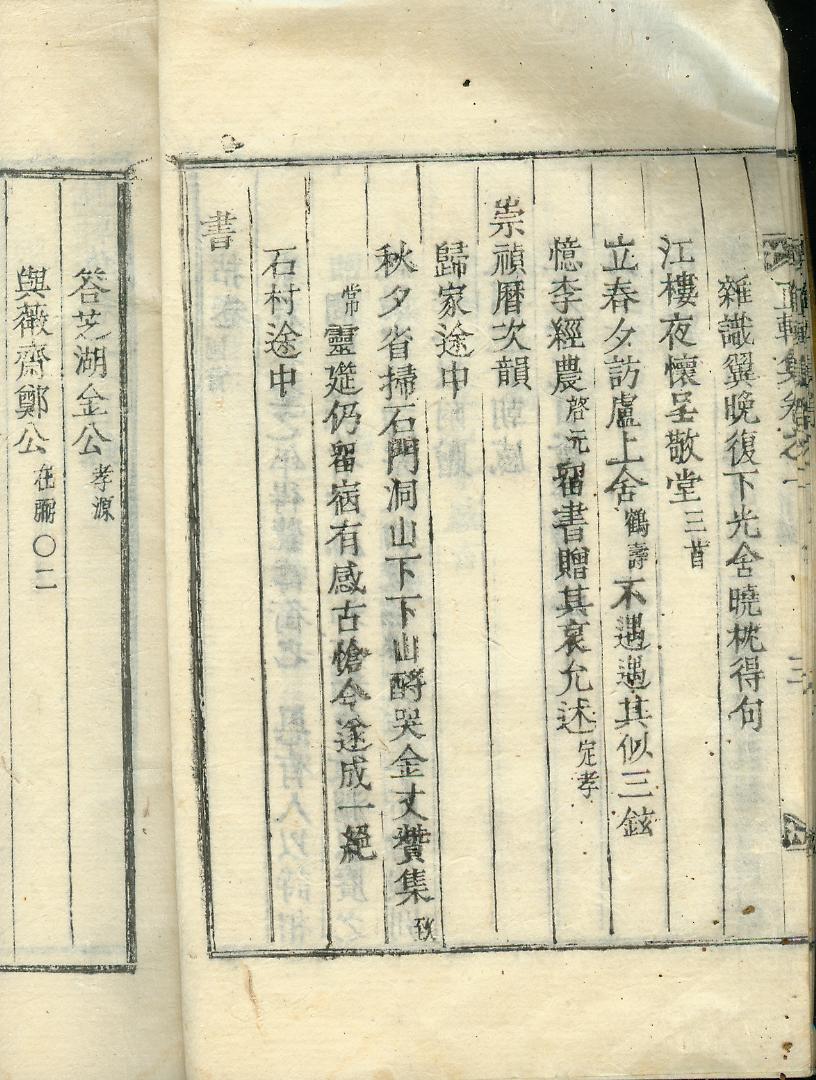 雜識翼晚復下光舍曉枕得句
江樓夜懷呈敬堂三首
立春夕訪盧上舍鶴壽不遇遇其似三鉉
憶李經農啓元留書贈其哀允述定孝
崇禎曆次韻
歸家途中
秋夕省掃石門洞山下下山酹哭金丈贊集致
常靈筵仍留宿有感古愴今遂成一絕
石村途中
書
答芝湖金公孝源
與薇齋鄭公在𢢜〇二